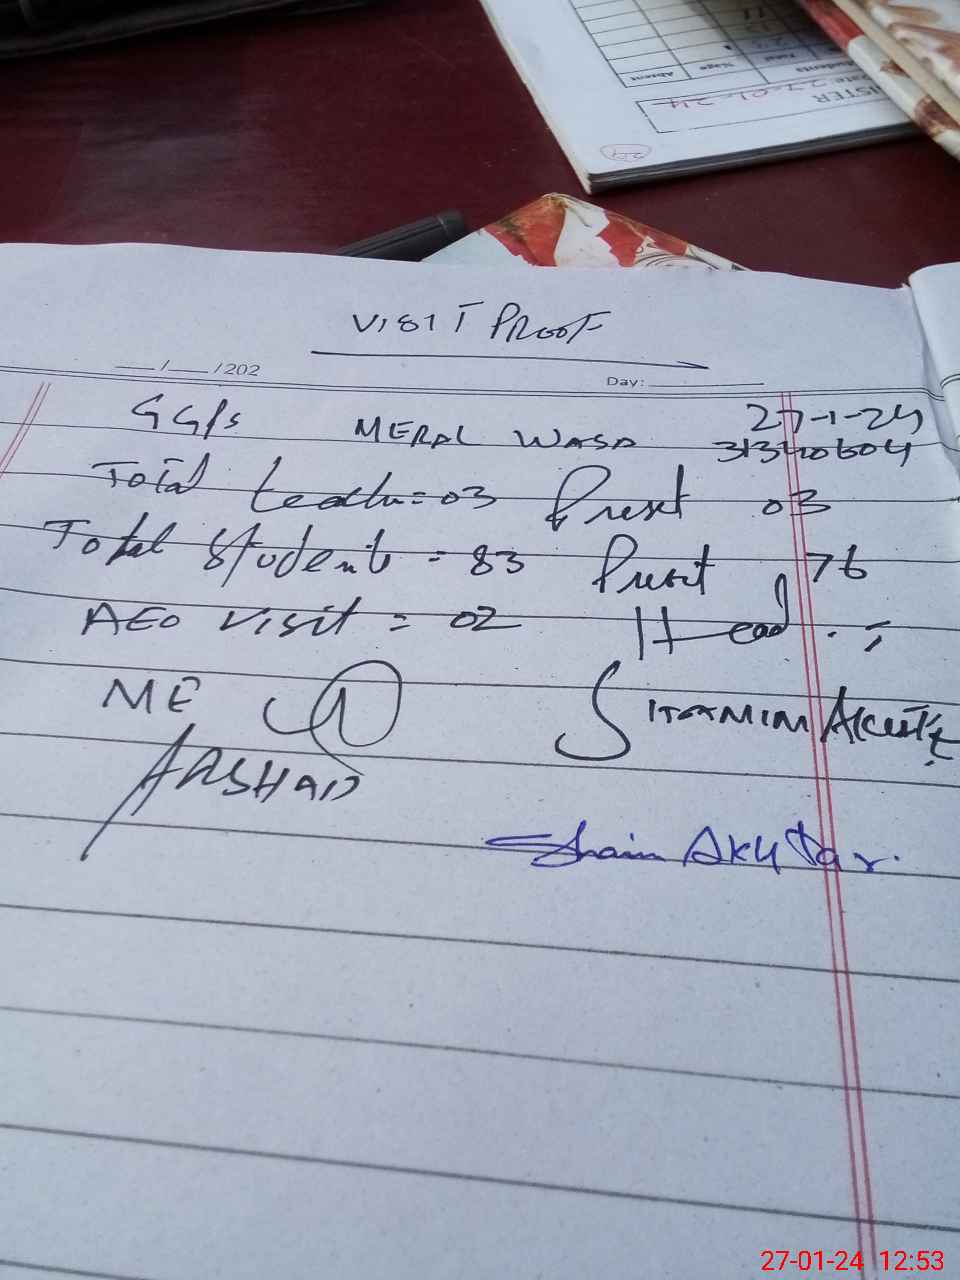 Absent
Wage
Total
Students
27-01-24
ISTER
24
VISIT PROOF
__/__/202
Day:
GGPS MERAL WASA 27-1-24
31340604
Total teacher=03 Preset 03
Total student = 83 Preset 76
AEO visit = 02 Head :-
ME
ARSHAD
Akhtar
27-01-24 12:53